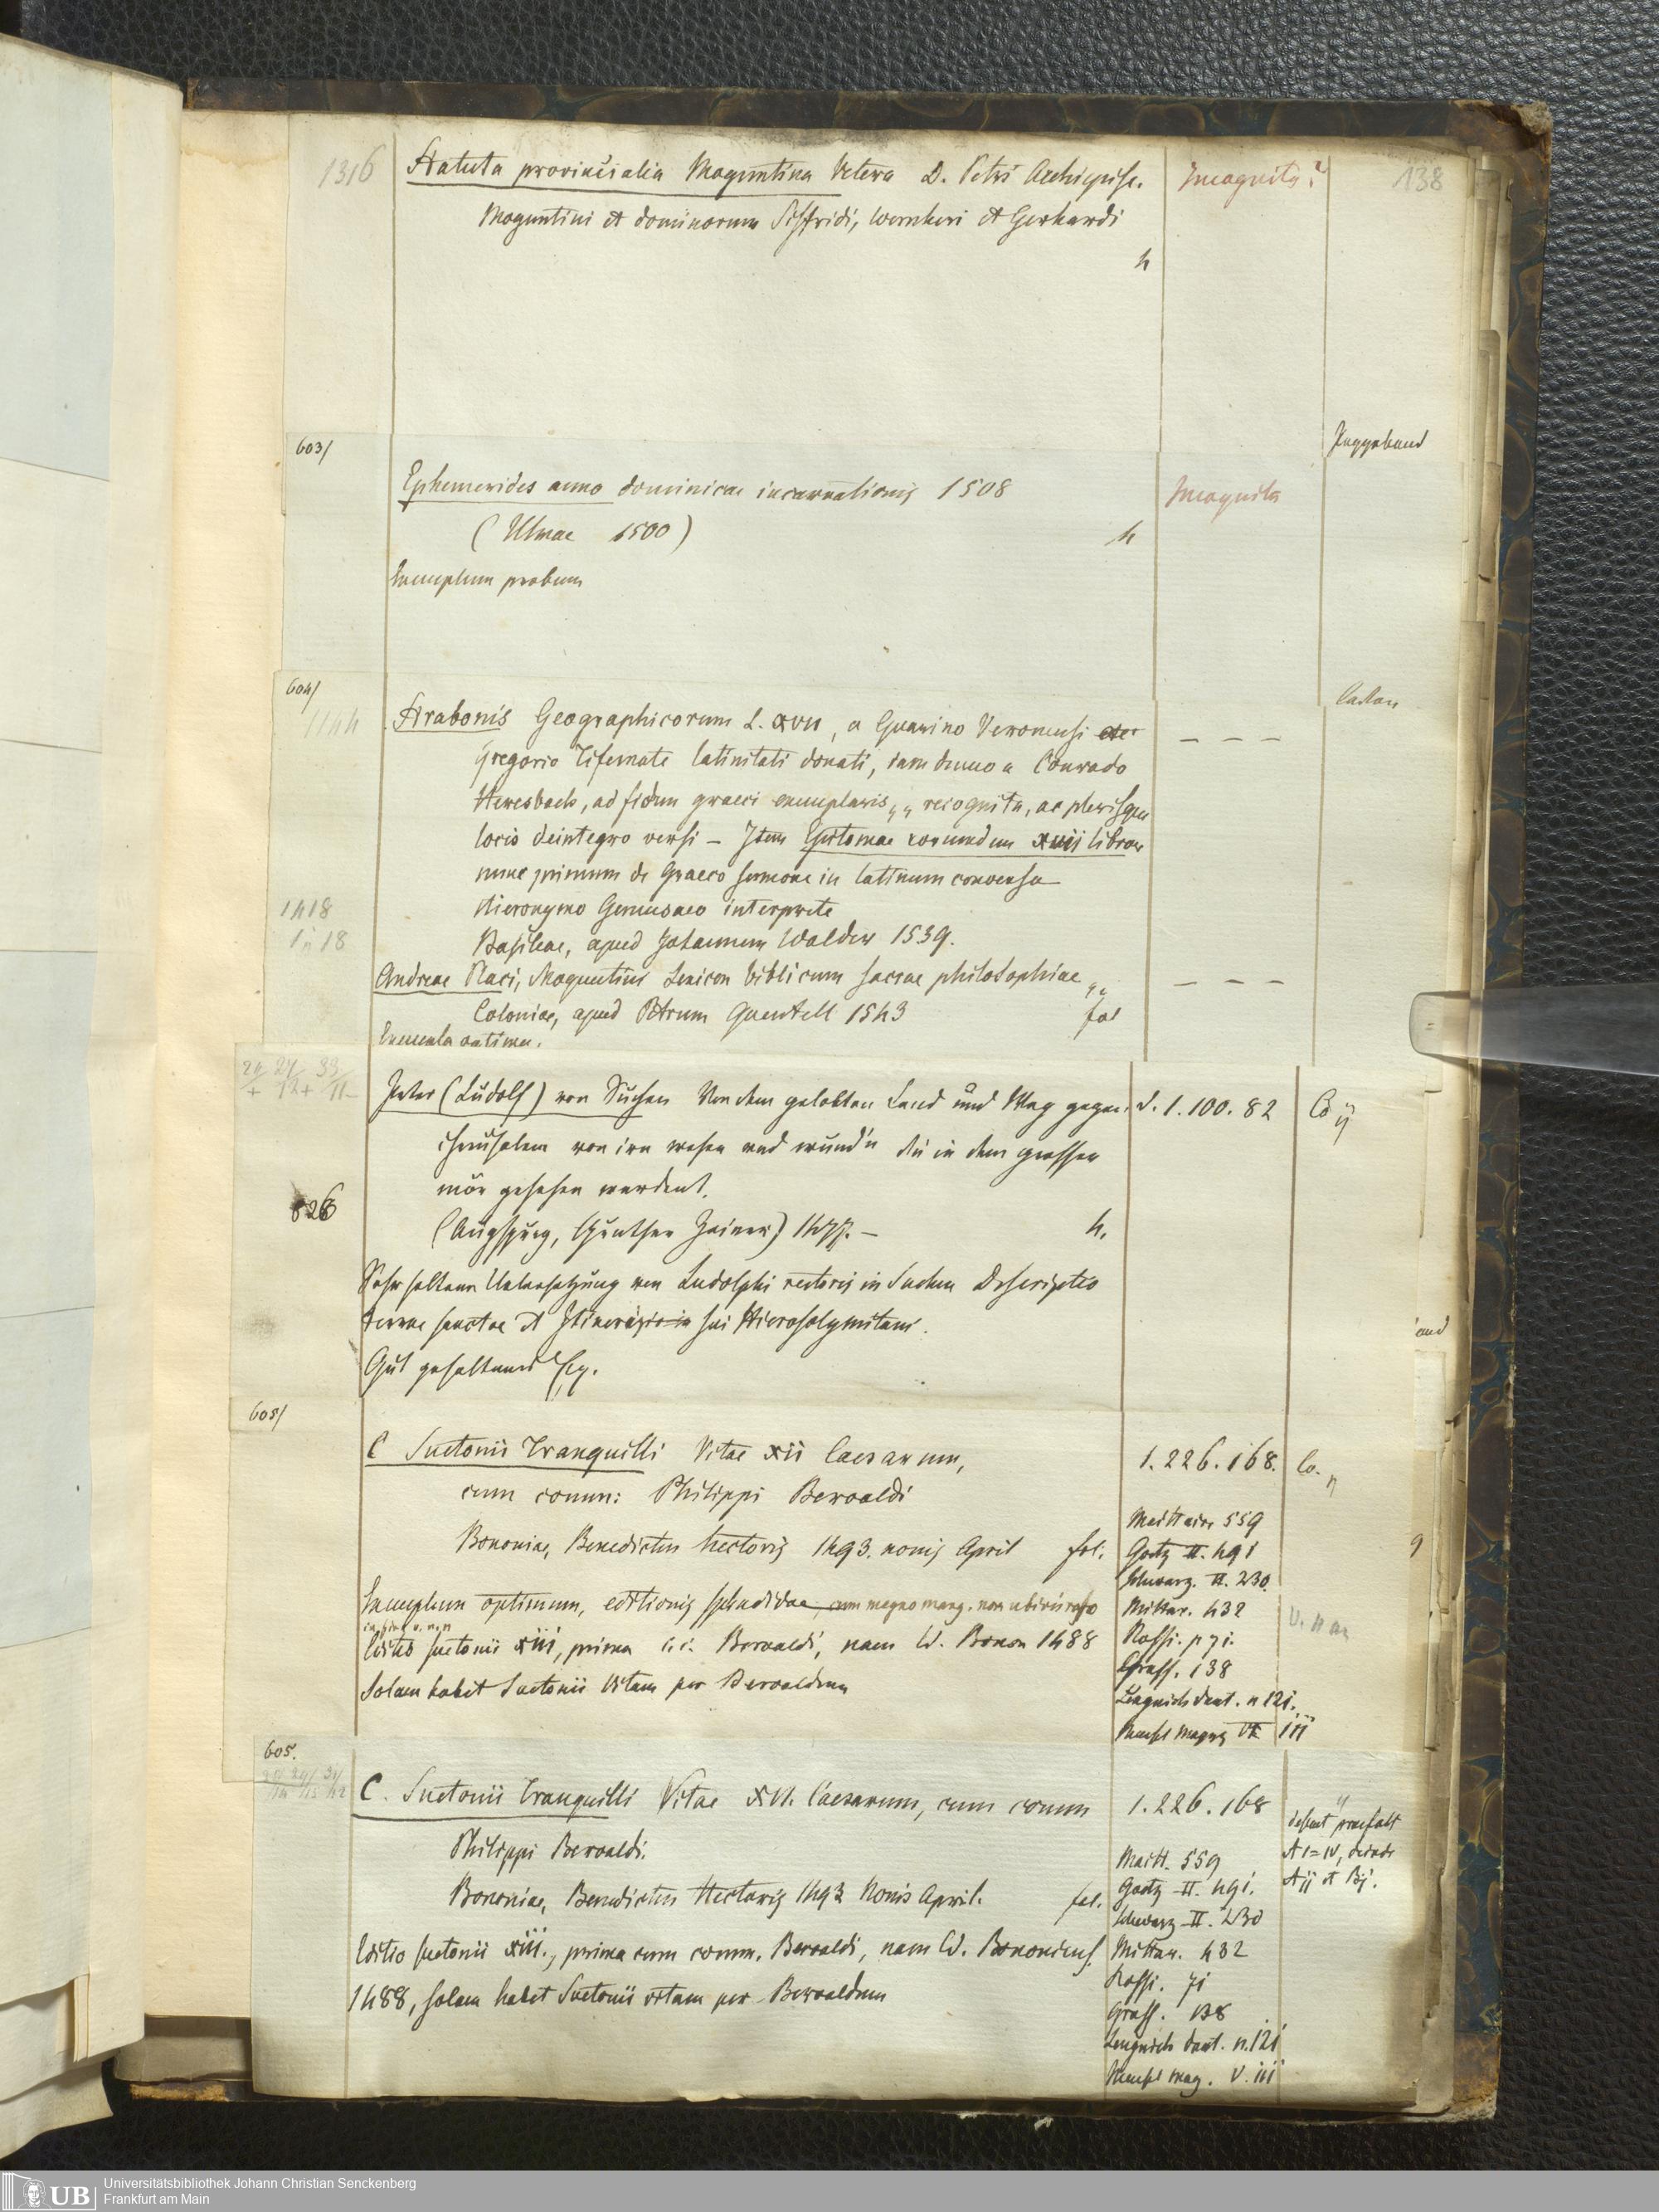 1316
Statuta provincialia Moguntina Vetera D. Petri Archiepisc.
Incognita?
138
Moguntini et dominorum Siffridi, Wernheri et Gerhardi
4
603/
Ephemerides anno dominicae incarnationis 1508
Incognita
(Ulmae 1500)
4
Exemplum probum
604/
1144
Strabonis Geographicorum L. XVII, a Guarino Veronensi
– – –
Gregorio Tifernate latinitati donati, iam denuo a Conrado
Heresbach, ad fidem graeci exemplaris,, recogniti, ac plerisque
locis deintegro versi – Item Epitomae eorumdem xvii libror
nunc primum de Graeco sermone in latinum conversa
1418
Hieronymo Gemusaeo interprete
1518
Basileae, apud Johannem Walder 1539.
Andreae Placi, Moguntini Lexicon biblicum sacrae philosophiae,,
– – –
Coloniae, apud Petrum Quentell 1543
fol
Exempla optima.
Peter (Ludolf) von Suchen Von dem gelobten Land und Weg gegen
1.100.82
Co
iherusalem von irn wesen und wund'n die in dem grossen
mör gesehen werdent.
826
(Augspurg, Günther Zainer) 1477. –
4.
Sehr seltene Uebersetzung von Ludolphi rectoris in Suchen Descriptio
terrae sanctae et Itinerarii sui Hierosolymitani.
Gut gehaltenes Ex.
605/
C Suetonii Tranquilli Vitae xii Caesarum,
1.226.168.
Co.
cum comm: Philippi Beroaldi
Maittaire 559
Bononiae, Benedictus Hectoris 1493. nonis April
fol.
Goetz II. 491
Schwarz. II. 230.
Exemplum optimum, editionis splendidae, cum magno marg. non ubivis raso
Mittar. 432
Editio Suetonii xiii, prima c.c. Beroaldi, nam Ed. Bonon 1488
Rossi. p 71.
solam habet Suetonii Vitam per Beroaldum
Graff. 138
Lengnich dant. n 121.
Meusel magaz VI III
605.
C. Suetonii Tranquilli Vitae XII. Caesarum, cum comm
1.226.168
desunt praefatt
Philippi Beroaldi.
Maitt. 559
A I=IV, deinde
Bononiae, Benedictus Hectoris 1493 Nonis April.
fol.
Goetz II. 491.
Aij et Bj.
Schwarz II. 230
Editio Suetonii xiii., prima cum comm. Beroaldi, nam Ed. Bononiens.
Mittar. 432
1488, solam habet Suetonii vitam per Beroaldum
Rossi. 71
Graff. 138
Lengnich dant. n.121
Meusel mag. V. III
Universitätsbibliothek Johann Christian Senckenberg
UB
Frankfurt am Main